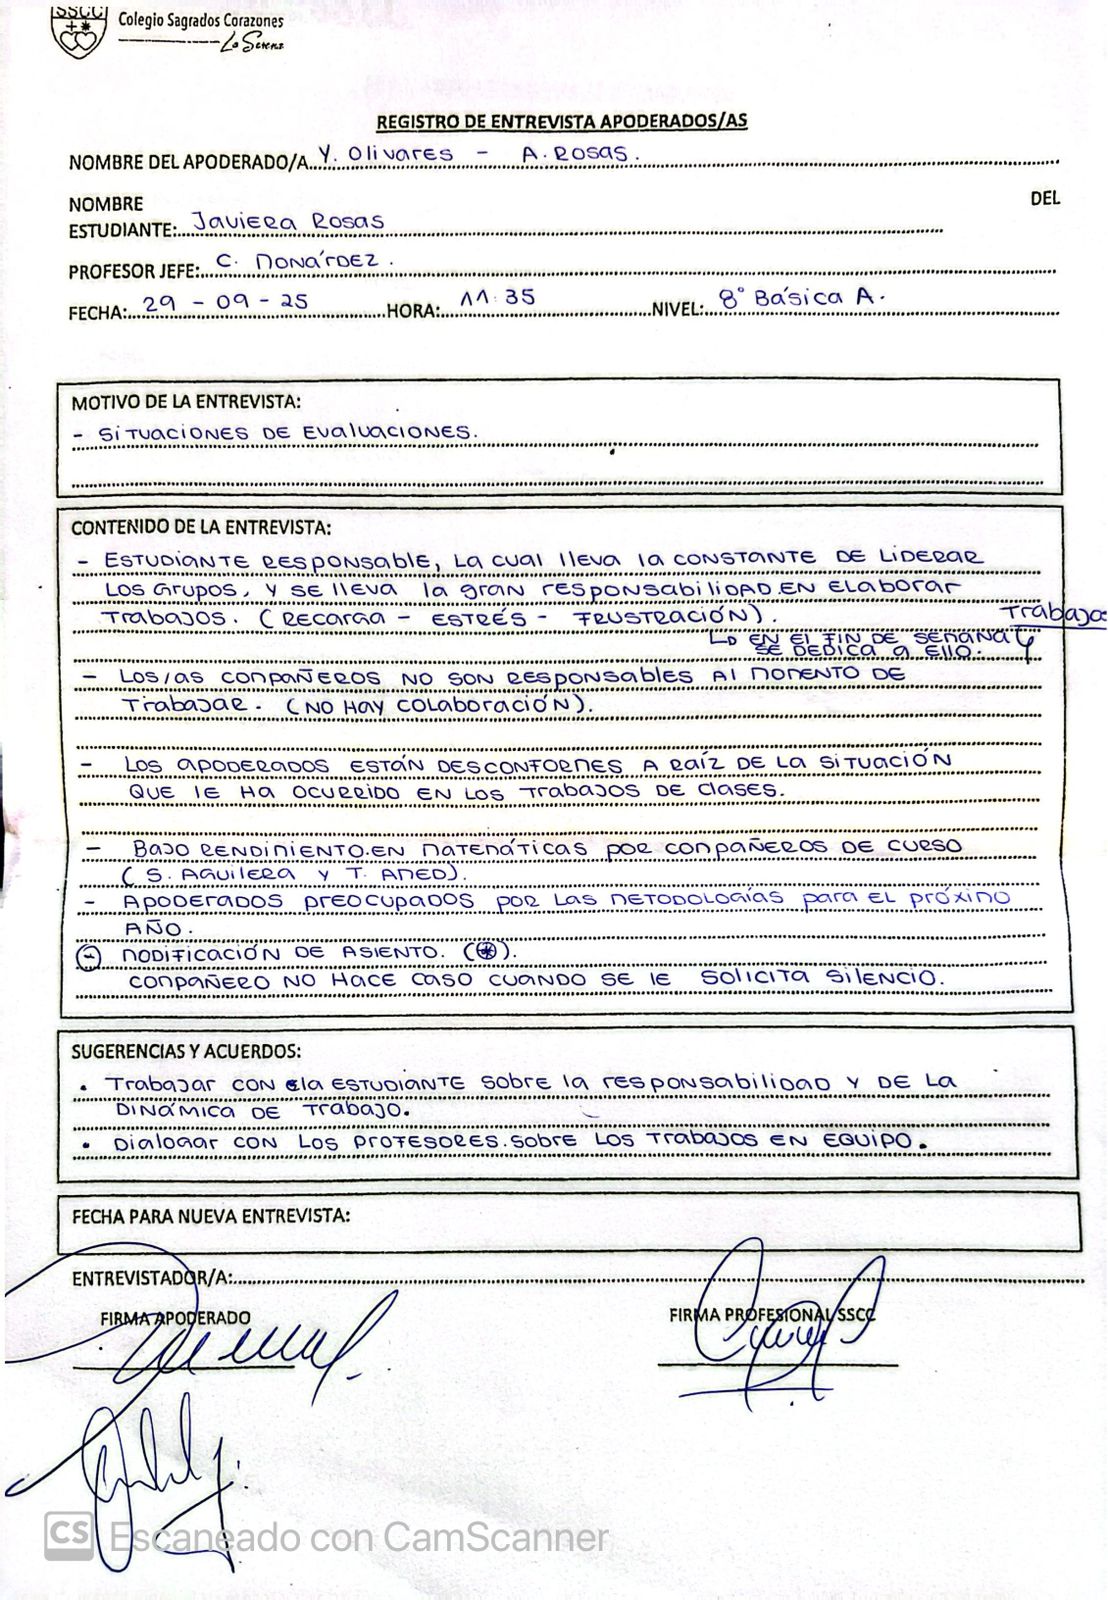 SSCC
Colegio Sagrados Corazones
La Serena
REGISTRO DE ENTREVISTA APODERADOS/AS
NOMBRE DEL APODERADO/A Y. Olivares - A. Rosas.
NOMBRE DEL
ESTUDIANTE: Javiera Rosas
PROFESOR JEFE: C. Monárdez.
FECHA: 29-09-25 HORA: 11:35 NIVEL: 8° Básica A.
MOTIVO DE LA ENTREVISTA:
- Situaciones de evaluaciones.
CONTENIDO DE LA ENTREVISTA:
- Estudiante responsable, la cual lleva la constante de liderar
los grupos, y se lleva la gran responsabilidad en elaborar
trabajos. (Recarga - Estrés - Frustración). Trabaja
↳ en el fin de semana y
se dedica a ello.
- Los/as compañeros no son responsables al momento de
trabajar. (No hay colaboración).
- Los apoderados están desconformes a raíz de la situación
que le ha ocurrido en los trabajos de clases.
- Bajo rendimiento en matemáticas por compañeros de curso
(S. Aguilera y T. Amed).
- Apoderados preocupados por las metodologías para el próximo
año.
- Modificación de asiento. (*).
compañero no hace caso cuando se le solicita silencio.
SUGERENCIAS Y ACUERDOS:
• Trabajar con la estudiante sobre la responsabilidad y de la
dinámica de trabajo.
• Dialogar con los profesores sobre los trabajos en equipo.
FECHA PARA NUEVA ENTREVISTA:
ENTREVISTADOR/A:
FIRMA APODERADO FIRMA PROFESIONAL SSCC
CS Escaneado con CamScanner